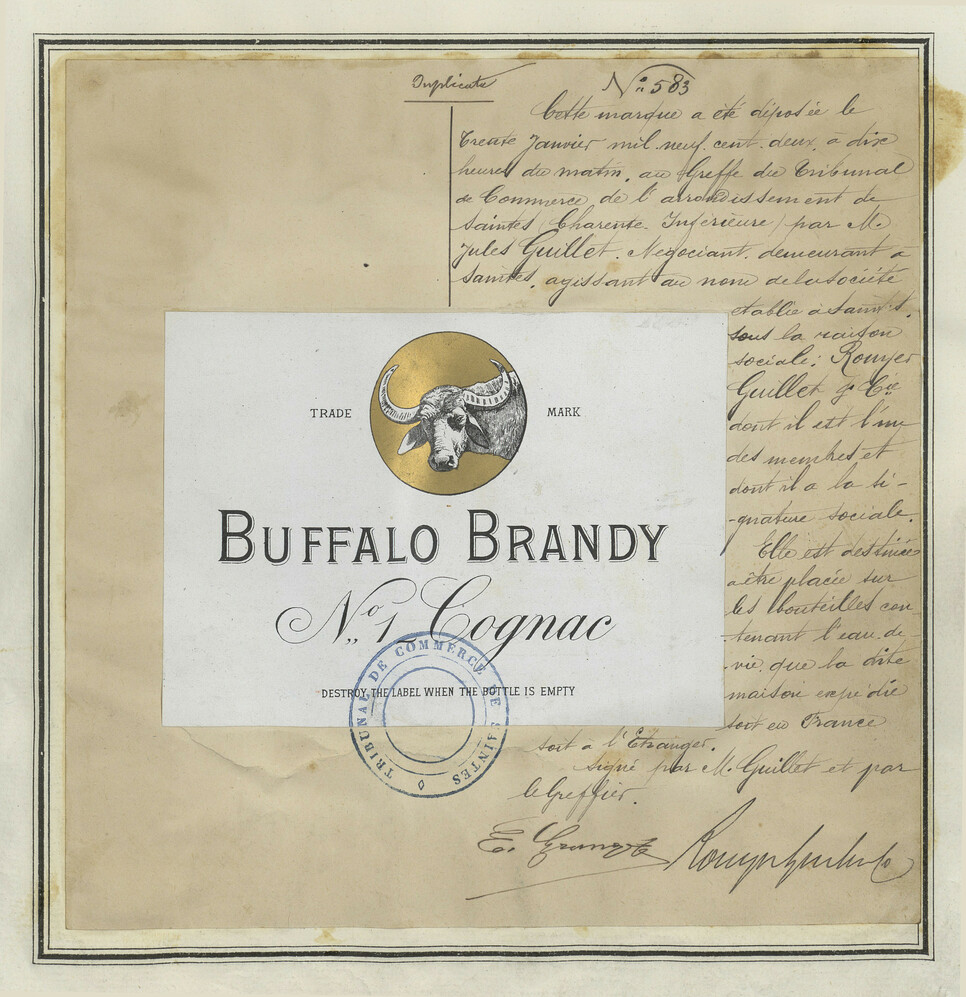 Duplicata
Nº 583
Cette marque a été déposée le
trente Janvier mil neuf cent deux, à dix
heures du matin, au Greffe du Tribunal
de Commerce de l'arrondissement de
Saintes (Charente Inférieure) par M.
Jules Guillet, Négociant, demeurant à
Saintes, agissant au nom de la société
établie à Saintes,
sous la raison
sociale: Rouyer
Guillet & Cie
dont il est l'un
des membres et
dont il a la si-
gnature sociale.
Elle est destinée
à être placée sur
les bouteilles con-
tenant l'eau-de-
vie que la dite
maison expédie
soit en France
soit à l'Etranger.
Signé par M. Guillet et par
le Greffier.
Rouyer Guillet & Co
TRADE MARK
BUFFALO BRANDY
No 1 Cognac
DESTROY THE LABEL WHEN THE BOTTLE IS EMPTY
TRIBUNAL DE COMMERCE DE SAINTES